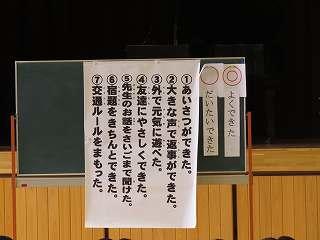 ◎ よくできた
○ だいたいできた
①あいさつができた。
②大きな声で返事ができた。
③外で元気に遊べた。
④友達にやさしくできた。
⑤先生のお話をさいごまで聞けた。
⑥宿題をきちんとできた。
⑦交通ルールをまもった。